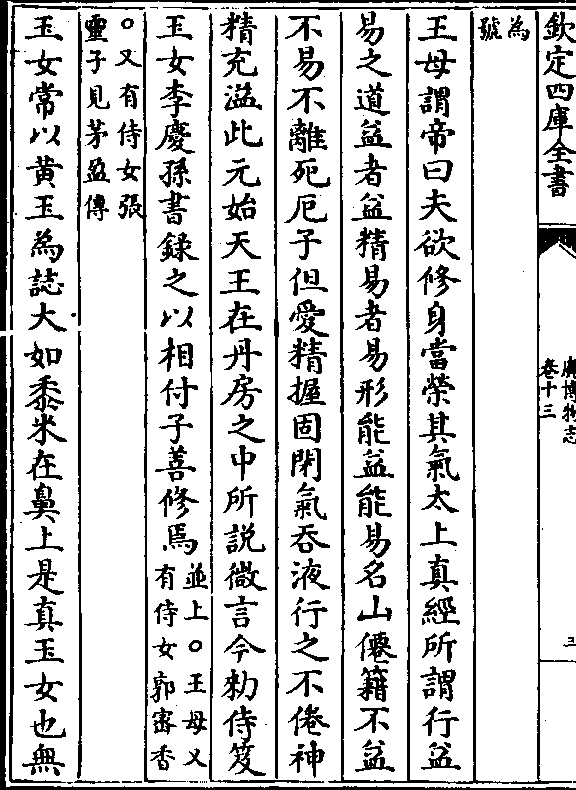 欽定四庫全書
廣博物志
卷十三
三
為
號
王母謂帝曰夫欲修身當榮其氣太上真經所謂行益
易之道益者益精易者易形能益能易名山僊籍不益
不易不離死厄子但愛精握固閉氣吞液行之不倦神
精充溢此元始天王在丹房之中所説微言今勑侍笈
玉女李慶孫書録之以相付子善修焉
並上○王母又
有侍女郭密香
○又有侍女張
靈子見茅盈傳
玉女常以黄玉為誌大如黍米在鼻上是真玉女也無